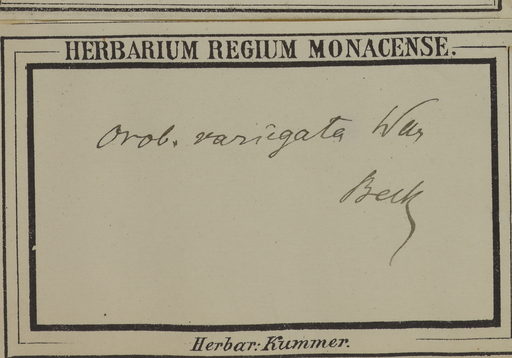 HERBARIUM REGIUM MONACENSE.
Orob. variegata Wallr
Beck
Herbar: Kummer.